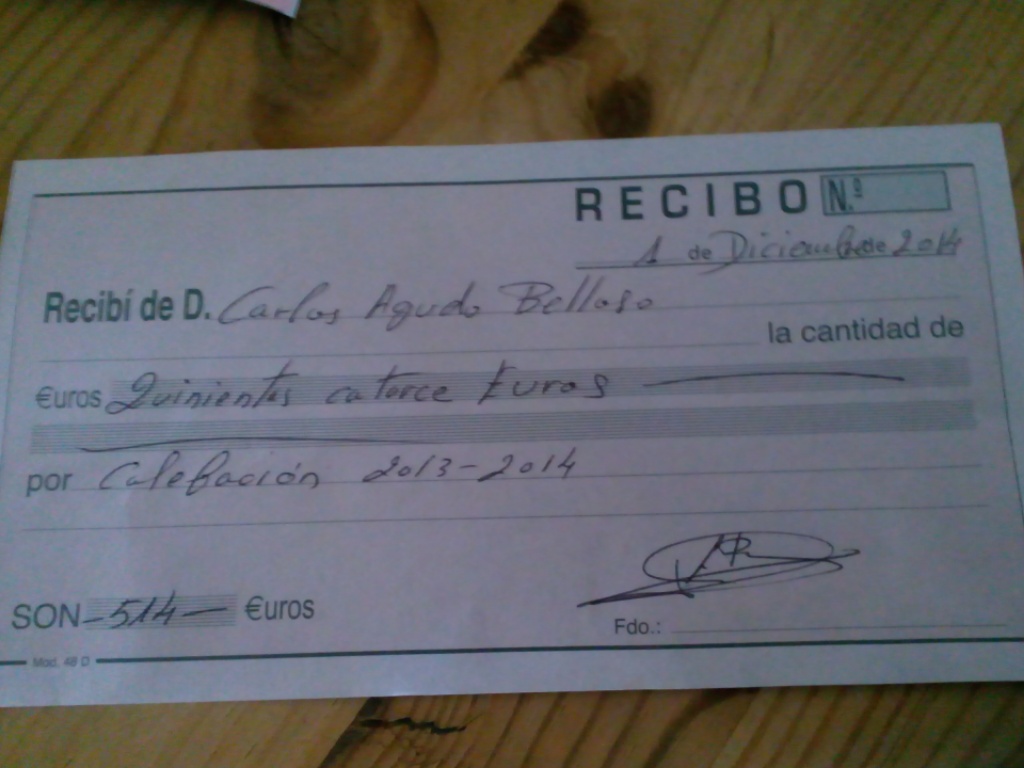 RECIBO N.º
1 de Diciembre de 2014
Recibí de D. Carlos Agudo Belloso
la cantidad de
€uros Quinientos catorce Euros
por Calefación 2013-2014
SON -514- €uros
Fdo.:
Mod. 48 D